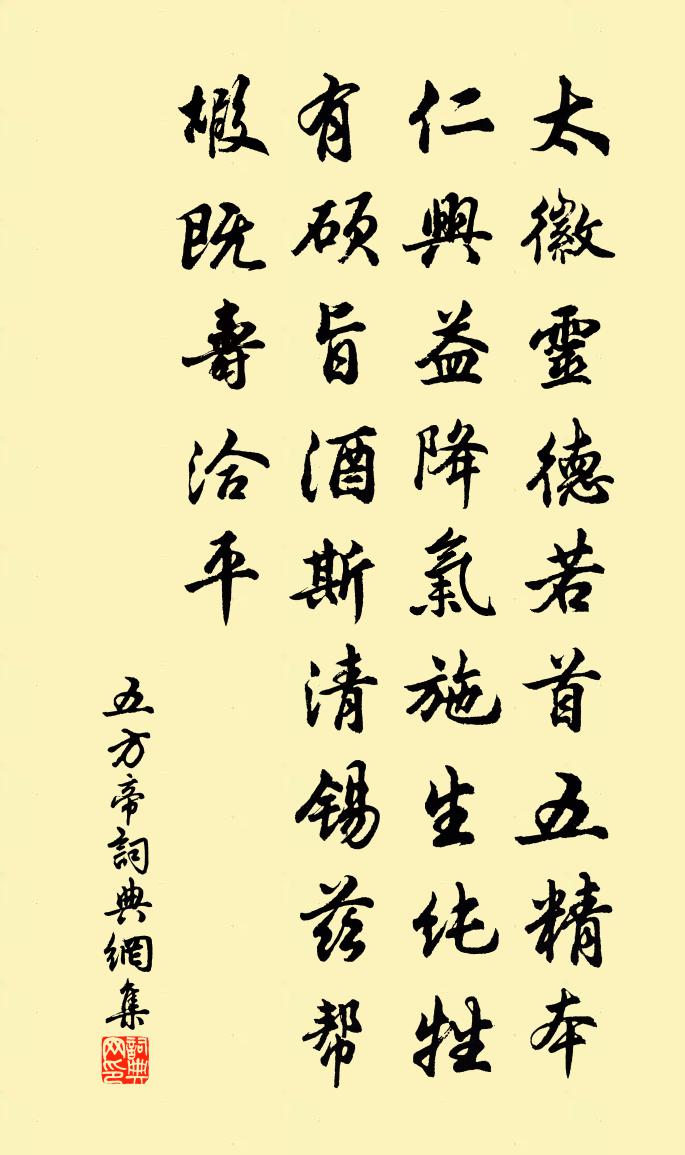 太徽靈德若首五精本
仁興益降氣施生純牲
有碩旨酒斯清錫茲幣
嘏既壽洽平
五方帝詞典網集
詞典网印